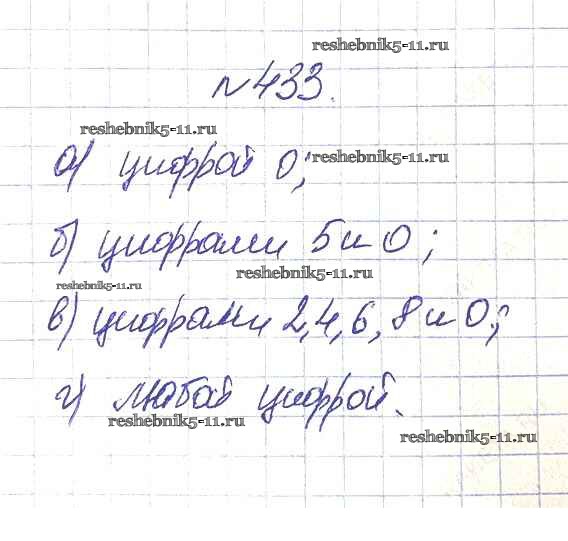 reshebnik5-11.ru
№433.
reshebnik5-11.ru
а) цифрой 0;
reshebnik5-11.ru
б) цифрами 5 и 0;
reshebnik5-11.ru
reshebnik5-11.ru
в) цифрами 2,4,6,8 и 0;
г) любой цифрой.
reshebnik5-11.ru
reshebnik5-11.ru